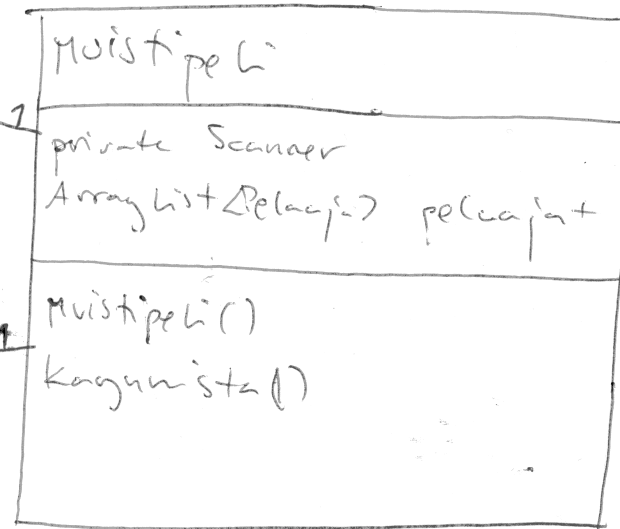 Muistipeli
1
private Scanner
ArrayList<Pelaaja> pelaajat
Muistipeli()
1
Kaynnista()